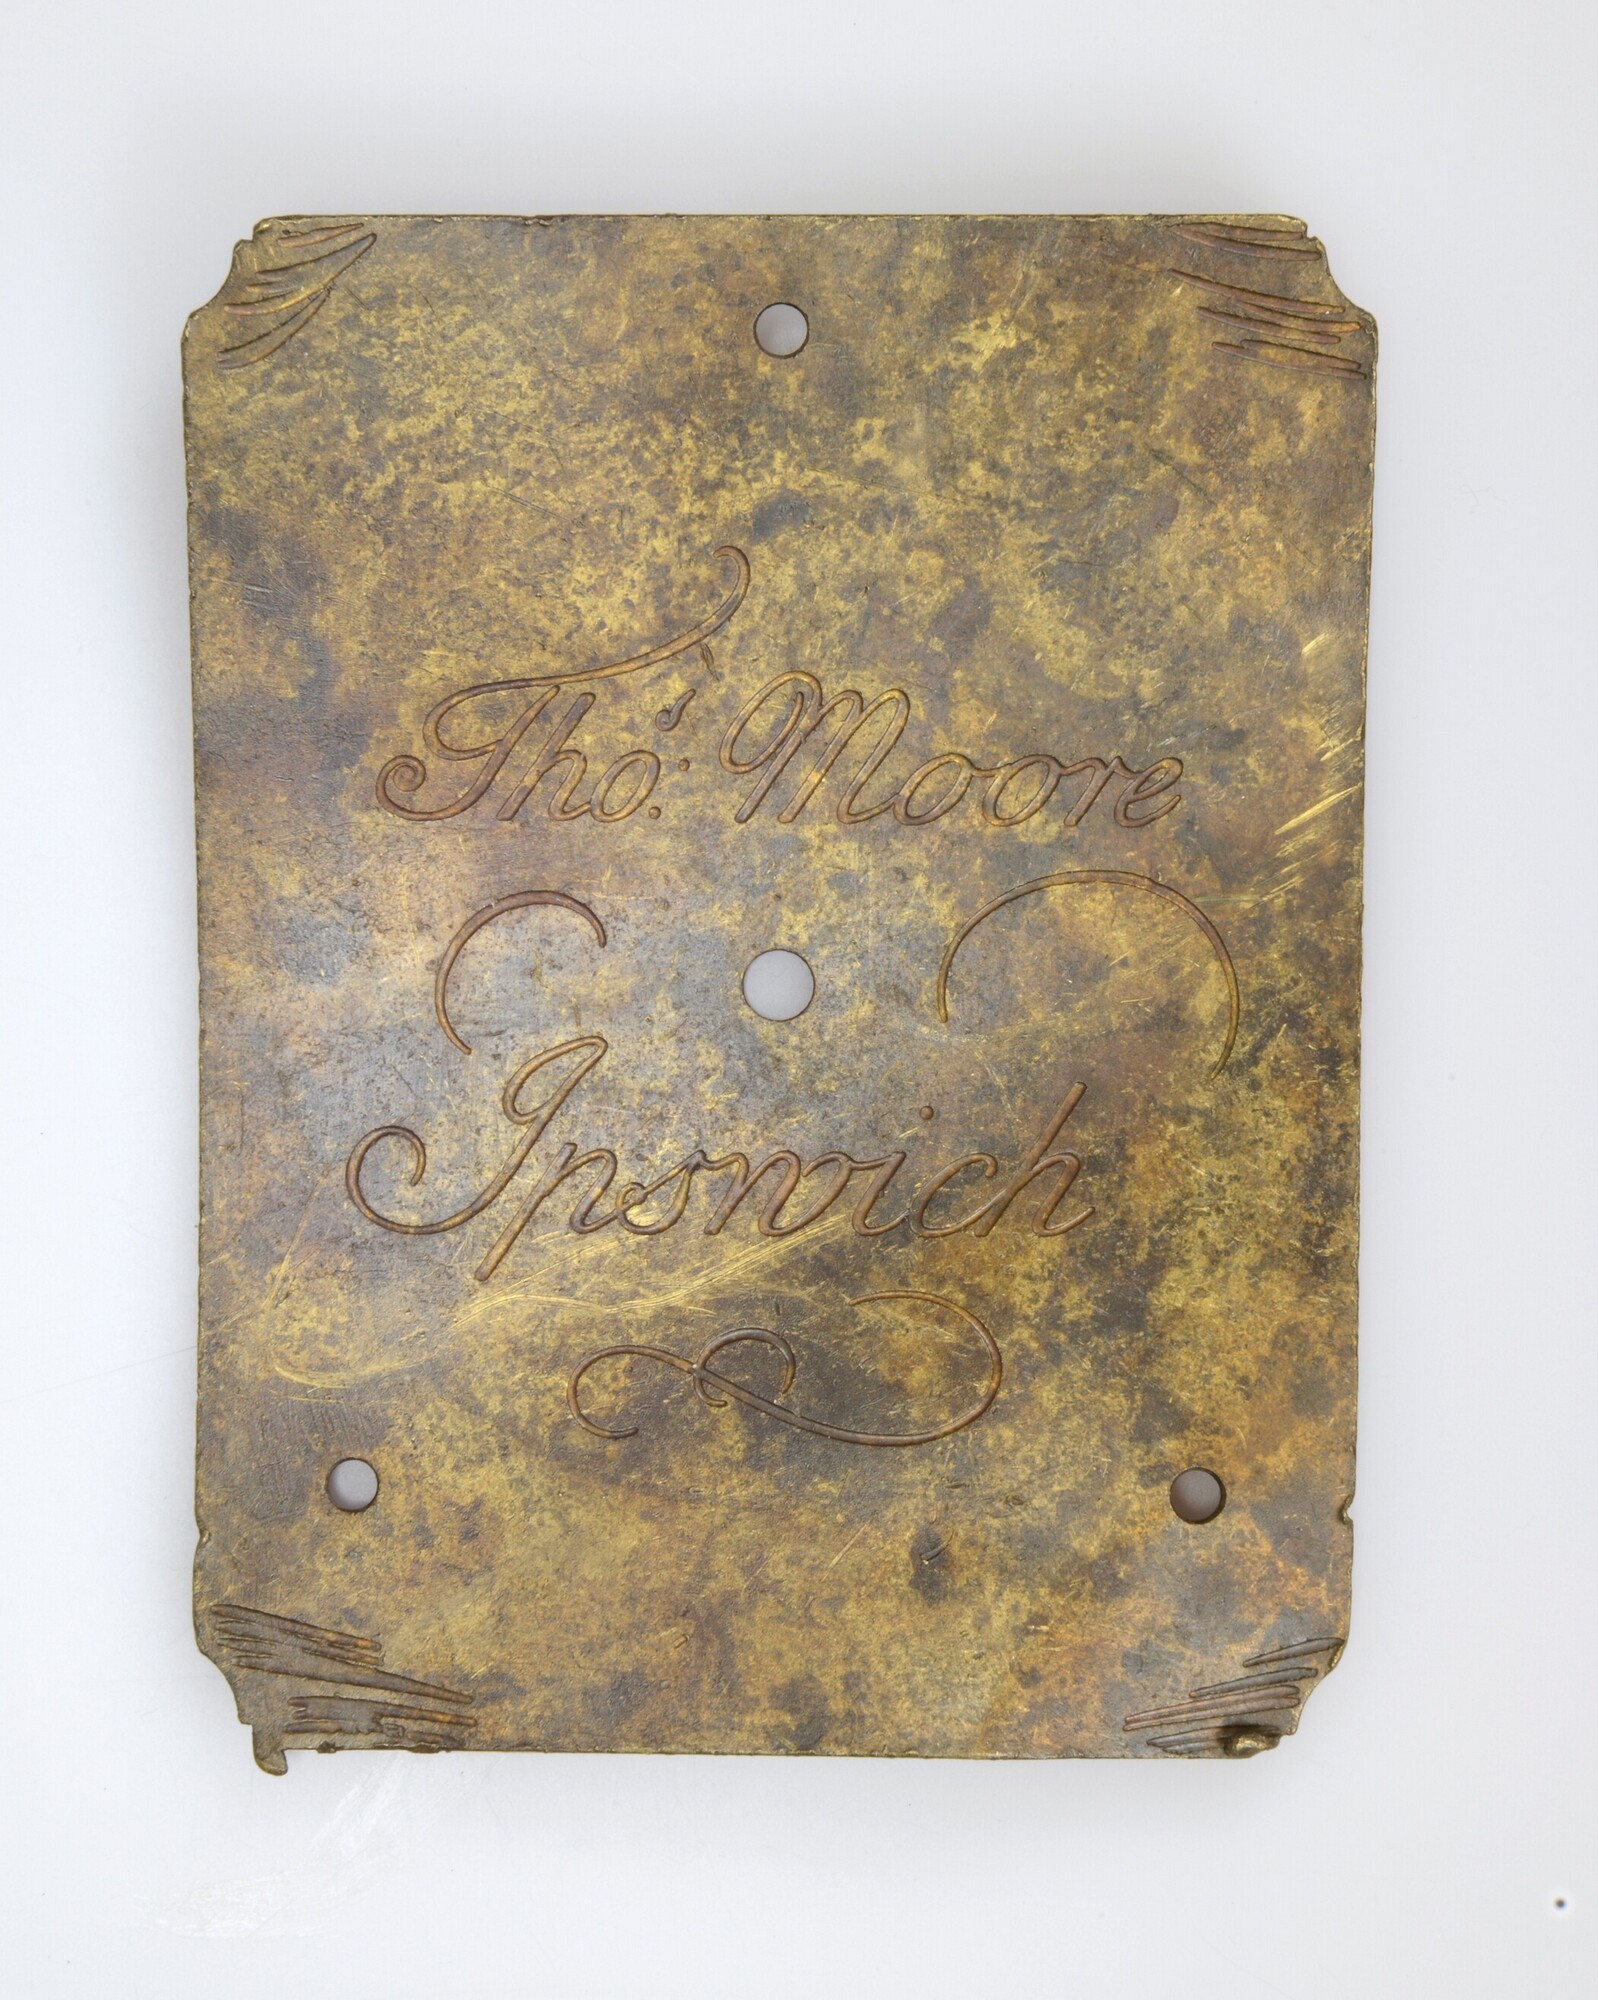 Tho:s Moore
Ipswich